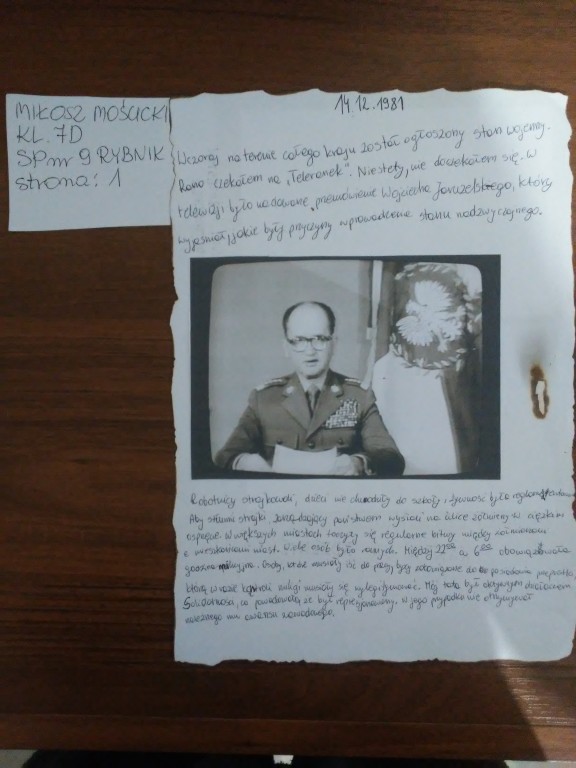 MIŁOSZ MOŚCICKI
KL. 7D
SP nr 9 RYBNIK
strona: 1
14.12.1981
Wczoraj na terenie całego kraju został ogłoszony stan wojenny.
Rano czekałem na „Teleranek". Niestety, nie doczekałem się. W
telewizji było nadawane przemówienie Wojciecha Jaruzelskiego, który
wyjaśniał, jakie były przyczyny wprowadzenia stanu nadzwyczajnego.
Robotnicy strajkowali, dzieci nie chodziły do szkoły i żywność była
Aby stłumić strajki, zarządzający państwem wysłali na ulice żołnierzy w ciężkim
W większych miastach toczyły się regularne bitwy między żołnierzami
a mieszkańcami miast. Wiele osób było rannych. Między 22⁰⁰ a 6⁰⁰ obowiązywała
godzina Osoby, które musiały iść do pracy były zobowiązane do posiadania przepustki,
którą w razie kontroli musiały się wylegitymować. Mój tata był aktywnym działaczem
Solidarności, co powodowało, że był represjonowany, w jego przypadku nie otrzymywał
zawodowego.